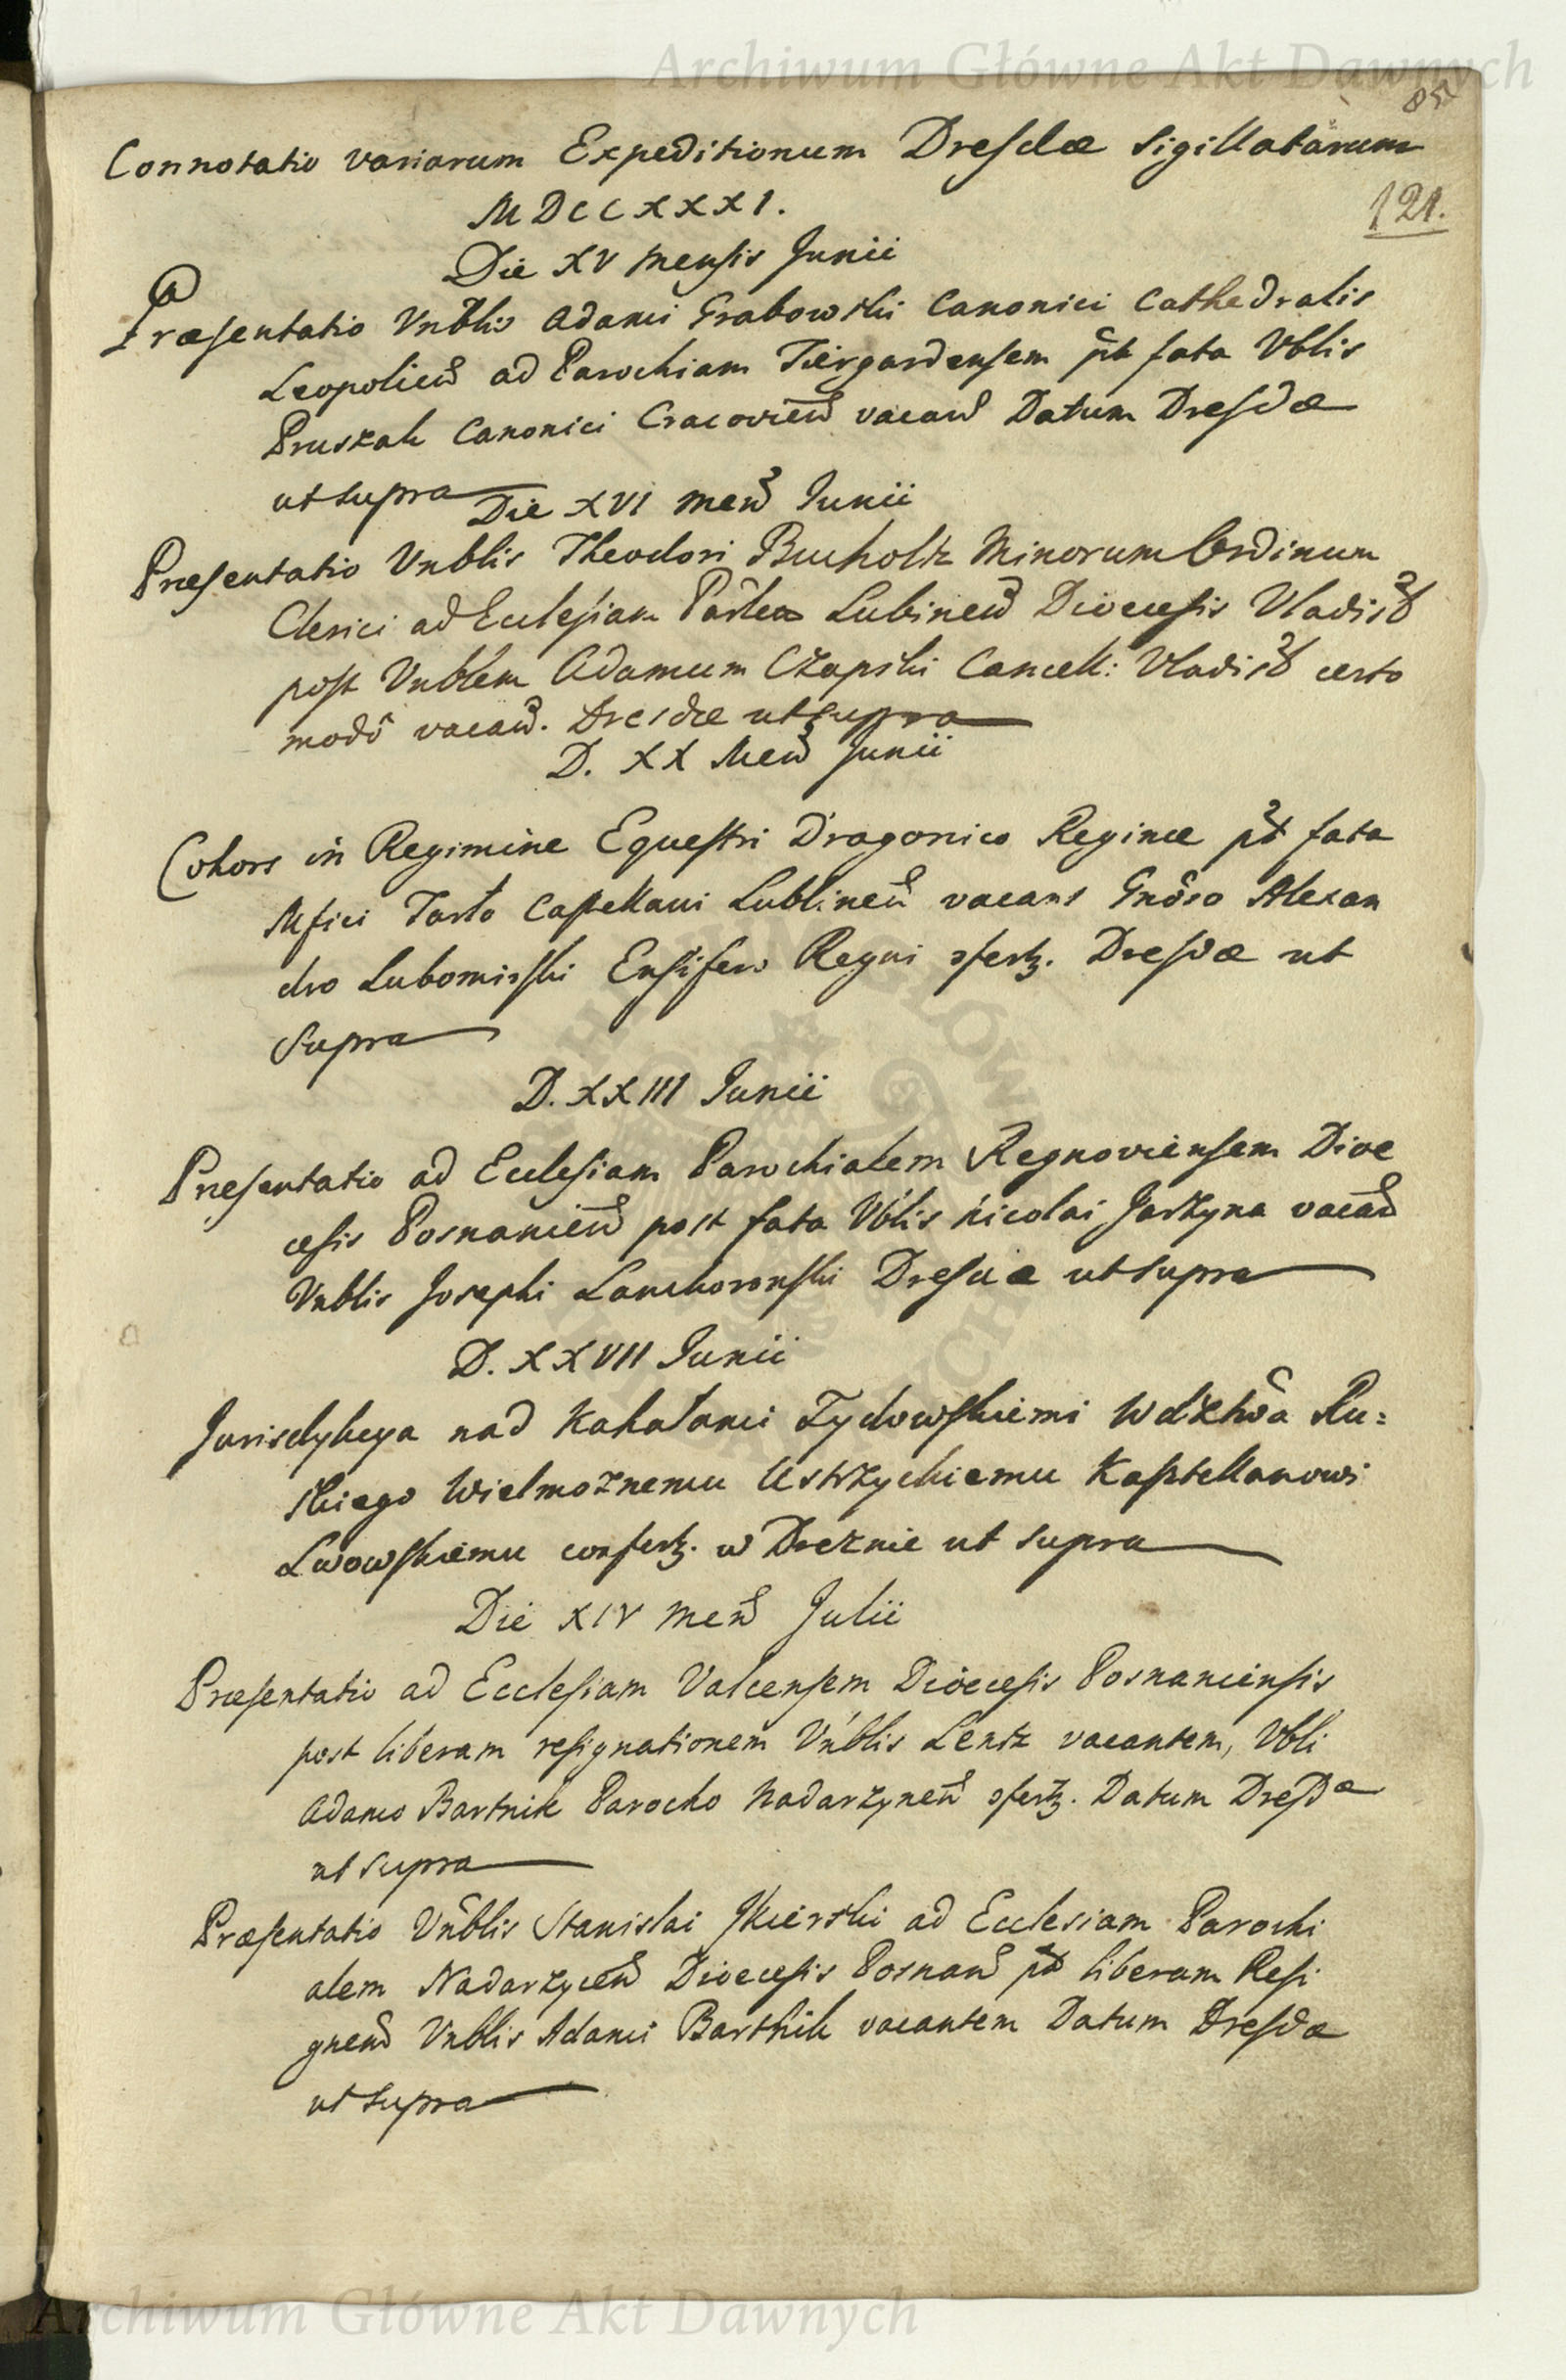 Archiwum Główne Akt Dawnych
85
Connotatio variarum Expeditionum Dresdæ Sigillatarum
MDCCXXXI.
121.
Die XV mensis Junii
Præsentatio Vnblis Adami Grabowski Canonici Cathedralis
Leopolien ad Parochiam Tiergardensem pt fata Vblis
Pruszak Canonici Cracovien vacan Datum Dresdæ
ut supra
Die XVI men Junii
Præsentatio Vnblis Theodori Bucholtz Minorum Ordinum
Clerici ad Ecclesiam Lubinen Diocesis Vladisl
post Vnblem Adamum Czapski Cancell: Vladisl certo
modô vacan. Dresdæ ut supra
D. XX Men Junii
Cohors in Regimine Equestri Dragonico Reginæ pt fata
Mfici Tarło Castellani Lublinen vacans Gnôso Alexan
dro Lubomirski Ensifero Regni sfertz. Dresdæ ut
Supra
D. XXIII Junii
Præsentatio ad Ecclesiam Parochialem Regnoviensem Dioe
cesis Posnanien post fata Vblis Nicolai Jarzyna vacan
Vnblis Josephi Lanckoronski Dresdæ ut supra
D. XXVII Junii
Jurisdykcya nad Kahałami Zydowskiemi Wdztwâ Ru=
skiego Wielmoznemu Ustrzyckiemu Kasztellanowi
Lwowskiemu confertz. w Dreznie ut supra
Die XIV men Julii
Præsentatio ad Ecclesiam Valcensem Dioecesis Posnaniensis
post liberam resignationem Vnblis Lentz vacantem, Vbli
Adamo Bartnik Parocho Nadarzynen sfertz. Datum Dresdæ
ut supra
Præsentatio Vnblis Stanislai Skierski ad Ecclesiam Parochi
alem Nadarzycen Dioecesis Posnan pt liberam Resi
gnen Vnblis Adami Barthik vacantem Datum Dresdæ
ut supra
Archiwum Główne Akt Dawnych